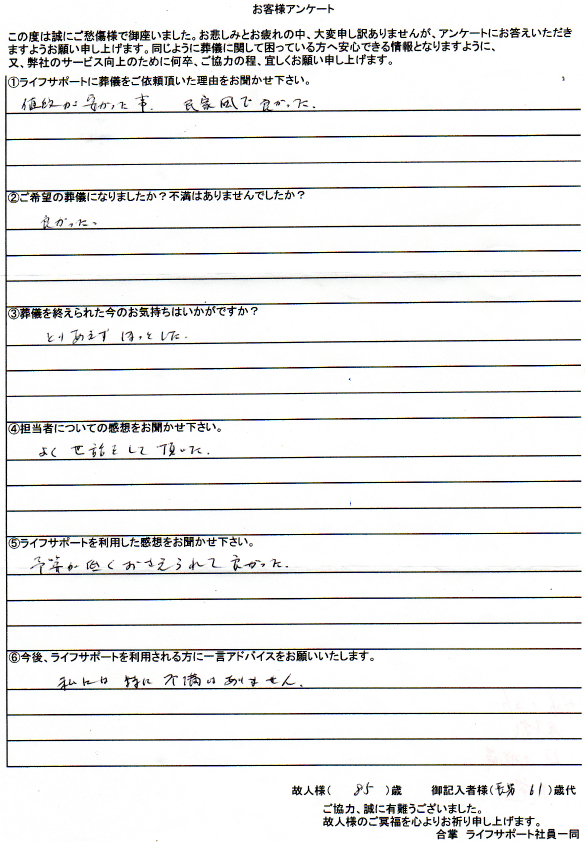 お客様アンケート
この度は誠にご愁傷様で御座いました。お悲しみとお疲れの中、大変申し訳ありませんが、アンケートにお答えいただき
ますようお願い申し上げます。同じように葬儀に関して困っている方へ安心できる情報となりますように、
又、弊社のサービス向上のために何卒、ご協力の程、宜しくお願い申し上げます。
①ライフサポートに葬儀をご依頼頂いた理由をお聞かせ下さい。
値段が安かった事、 民家風で良かった。
②ご希望の葬儀になりましたか？不満はありませんでしたか？
良かった。
③葬儀を終えられた今のお気持ちはいかがですか？
とりあえずほっとした。
④担当者についての感想をお聞かせ下さい。
よく世話をして頂いた。
⑤ライフサポートを利用した感想をお聞かせ下さい。
予算が低くおさえられて良かった。
⑥今後、ライフサポートを利用される方に一言アドバイスをお願いいたします。
私には特に不満はありません。
故人様( 85 )歳 御記入者様(長男 61)歳代
ご協力、誠に有難うございました。
故人様のご冥福を心よりお祈り申し上げます。
合掌 ライフサポート社員一同